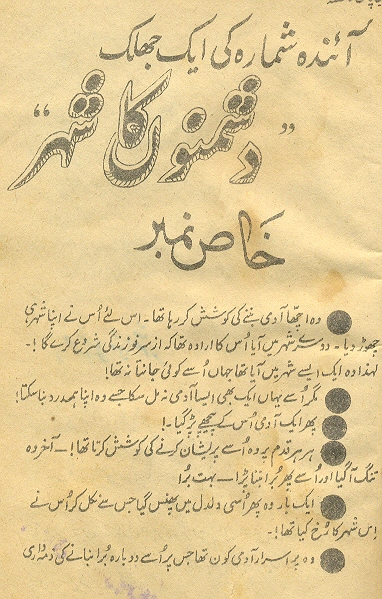 آئندہ شمارہ کی ایک جھلک
"دشمنوں کا شہر"
خاص نمبر
● وہ اچھا آدمی بننے کی کوشش کر رہا تھا۔ اس لئے اُس نے اپنا شہر ہی
چھوڑ دیا۔ دوسرے شہر میں آیا اُس کا ارادہ تھا کہ از سرِ نو زندگی شروع کرے گا!۔
لہٰذا وہ ایک ایسے شہر میں آیا تھا جہاں اُسے کوئی جانتا نہ تھا!
● مگر اُسے یہاں ایک بھی ایسا آدمی نہ مل سکا جسے وہ اپنا ہمدرد بنا سکتا!
● پھر ایک آدمی اُس کے پیچھے پڑ گیا۔!
● ہر ہر قدم پر وہ اُسے پریشان کرنے کی کوشش کرتا تھا!۔ آخر وہ
تنگ آ گیا اور اُسے پھر بُرا بننا پڑا۔ بہت بُرا
● ایک بار وہ پھر اُسی دلدل میں پھنس گیا جس سے نکل کر اُس نے
اس شہر کا رُخ کیا تھا!۔
● وہ پر اسرار آدمی کون تھا جس پر اُسے دوبارہ بُرا بنانے کی ذمہ داری